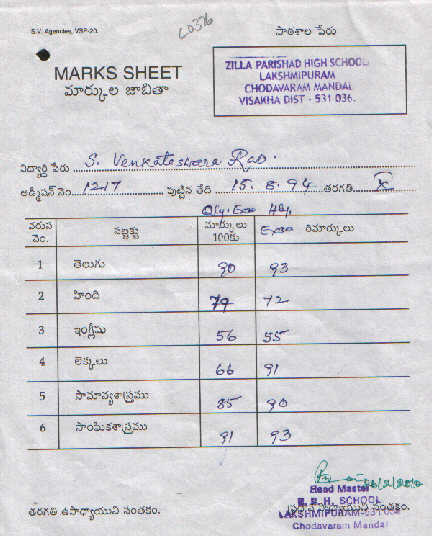 S.V. Agencies, VSP-20.
C0376
పాఠశాల పేరు
MARKS SHEET
మార్కుల జాబితా
ZILLA PARISHAD HIGH SCHOOL
LAKSHMIPURAM
CHODAVARAM MANDAL
VISAKHA DIST - 531 036.
విద్యార్థి పేరు S. Venkateswara Rao.
అడ్మిషన్ నెం. 1217 పుట్టిన తేది 15.8.94 తరగతి X
వరుస నెం. సబ్జెక్టు మార్కులు 100కు రిమార్కులు
1 తెలుగు 90 93
2 హింది 79 72
3 ఇంగ్లీషు 56 55
4 లెక్కలు 66 91
5 సామాన్యశాస్త్రము 85 90
6 సాంఘికశాస్త్రము 91 93
Head Master
తరగతి ఉపాధ్యాయుని సంతకం.
H. SCHOOL
LAKSHMIPURAM-531 036
Chodavaram Mandal